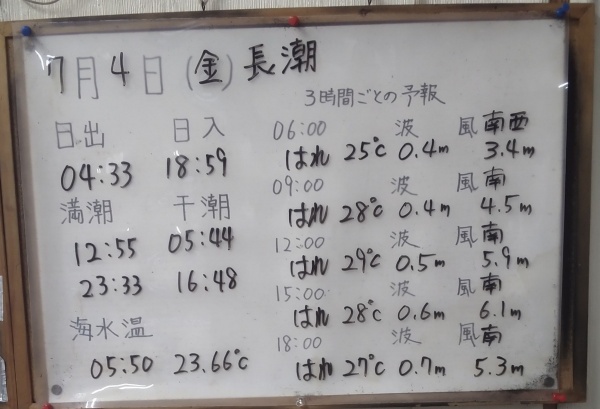 7月4日(金)長潮
日出 日入
04:33 18:59
満潮 干潮
12:55 05:44
23:33 16:48
海水温
05:50 23.66℃
3時間ごとの予報
06:00 波 風 南西
はれ 25℃ 0.4m 3.4m
09:00 波 風 南
はれ 28℃ 0.4m 4.5m
12:00 波 風 南
はれ 29℃ 0.5m 5.9m
15:00 波 風 南
はれ 28℃ 0.6m 6.1m
18:00 波 風 南
はれ 27℃ 0.7m 5.3m